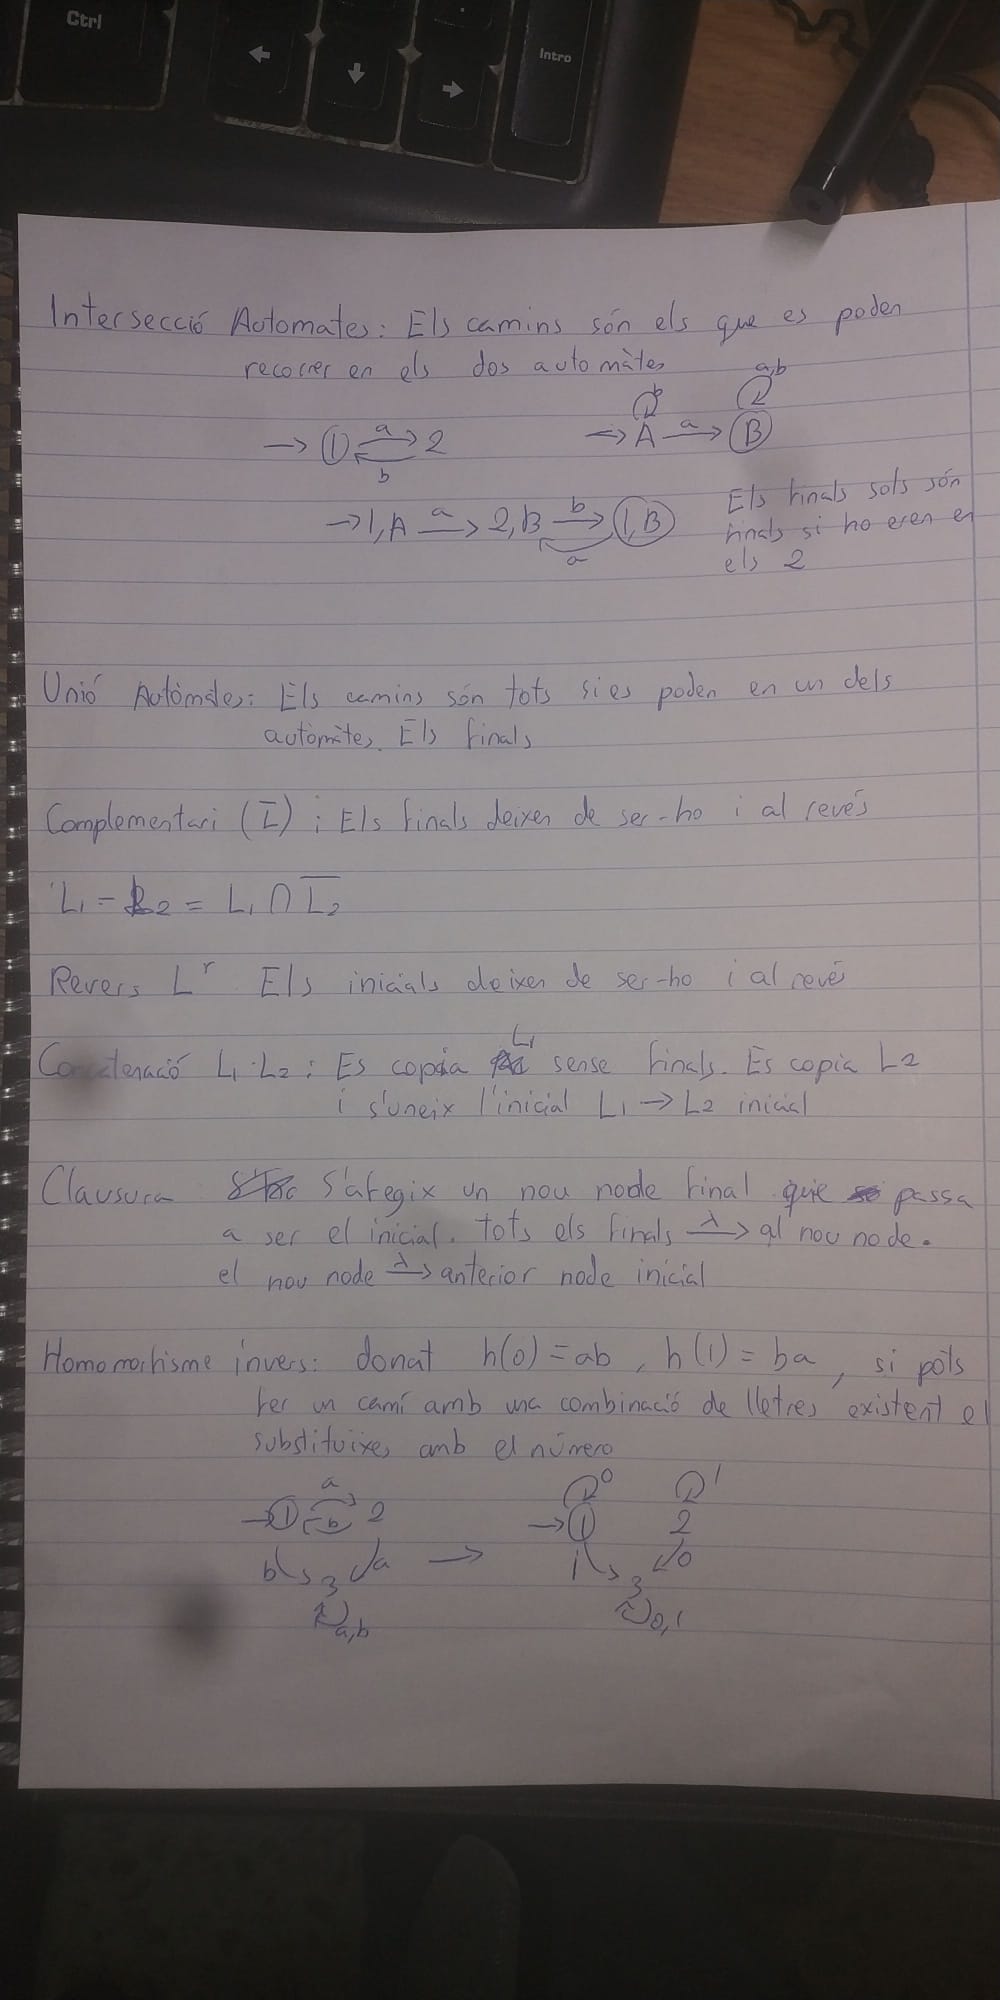 Ctrl
Intro
Intersecció Automates: Els camins són els que es poden
recorrer en els dos automàtes
→ 1 a 2
b
→ A a → B
b
a,b
→ 1,A a → 2,B b → 1,B
a
Els finals sols són
finals si ho eren en
els 2
Unió Autòmates: Els camins són tots si es poden en un dels
automàtes. Els finals
Complementari (L̅) : Els finals deixen de ser-ho i al revés
L1 - L2 = L1 ∩ L̅2
Revers Lʳ Els inicials deixen de ser-ho i al revés
Concatenació L1·L2 : Es copia L1 sense finals. Es copia L2
i s'uneix l'inicial L1 → L2 inicial
Clausura S'afegix un nou node final que passa
a ser el inicial. tots els finals λ→ al nou node.
el nou node λ→ anterior node inicial
Homomorfisme invers: donat h(0) = ab, h(1) = ba, si pots
fer un camí amb una combinació de lletres existent el
substituixes amb el número
a
→ 1 b 2
b 3 a
a,b
→
0 1
→ 1 2
1 3 0
0,1